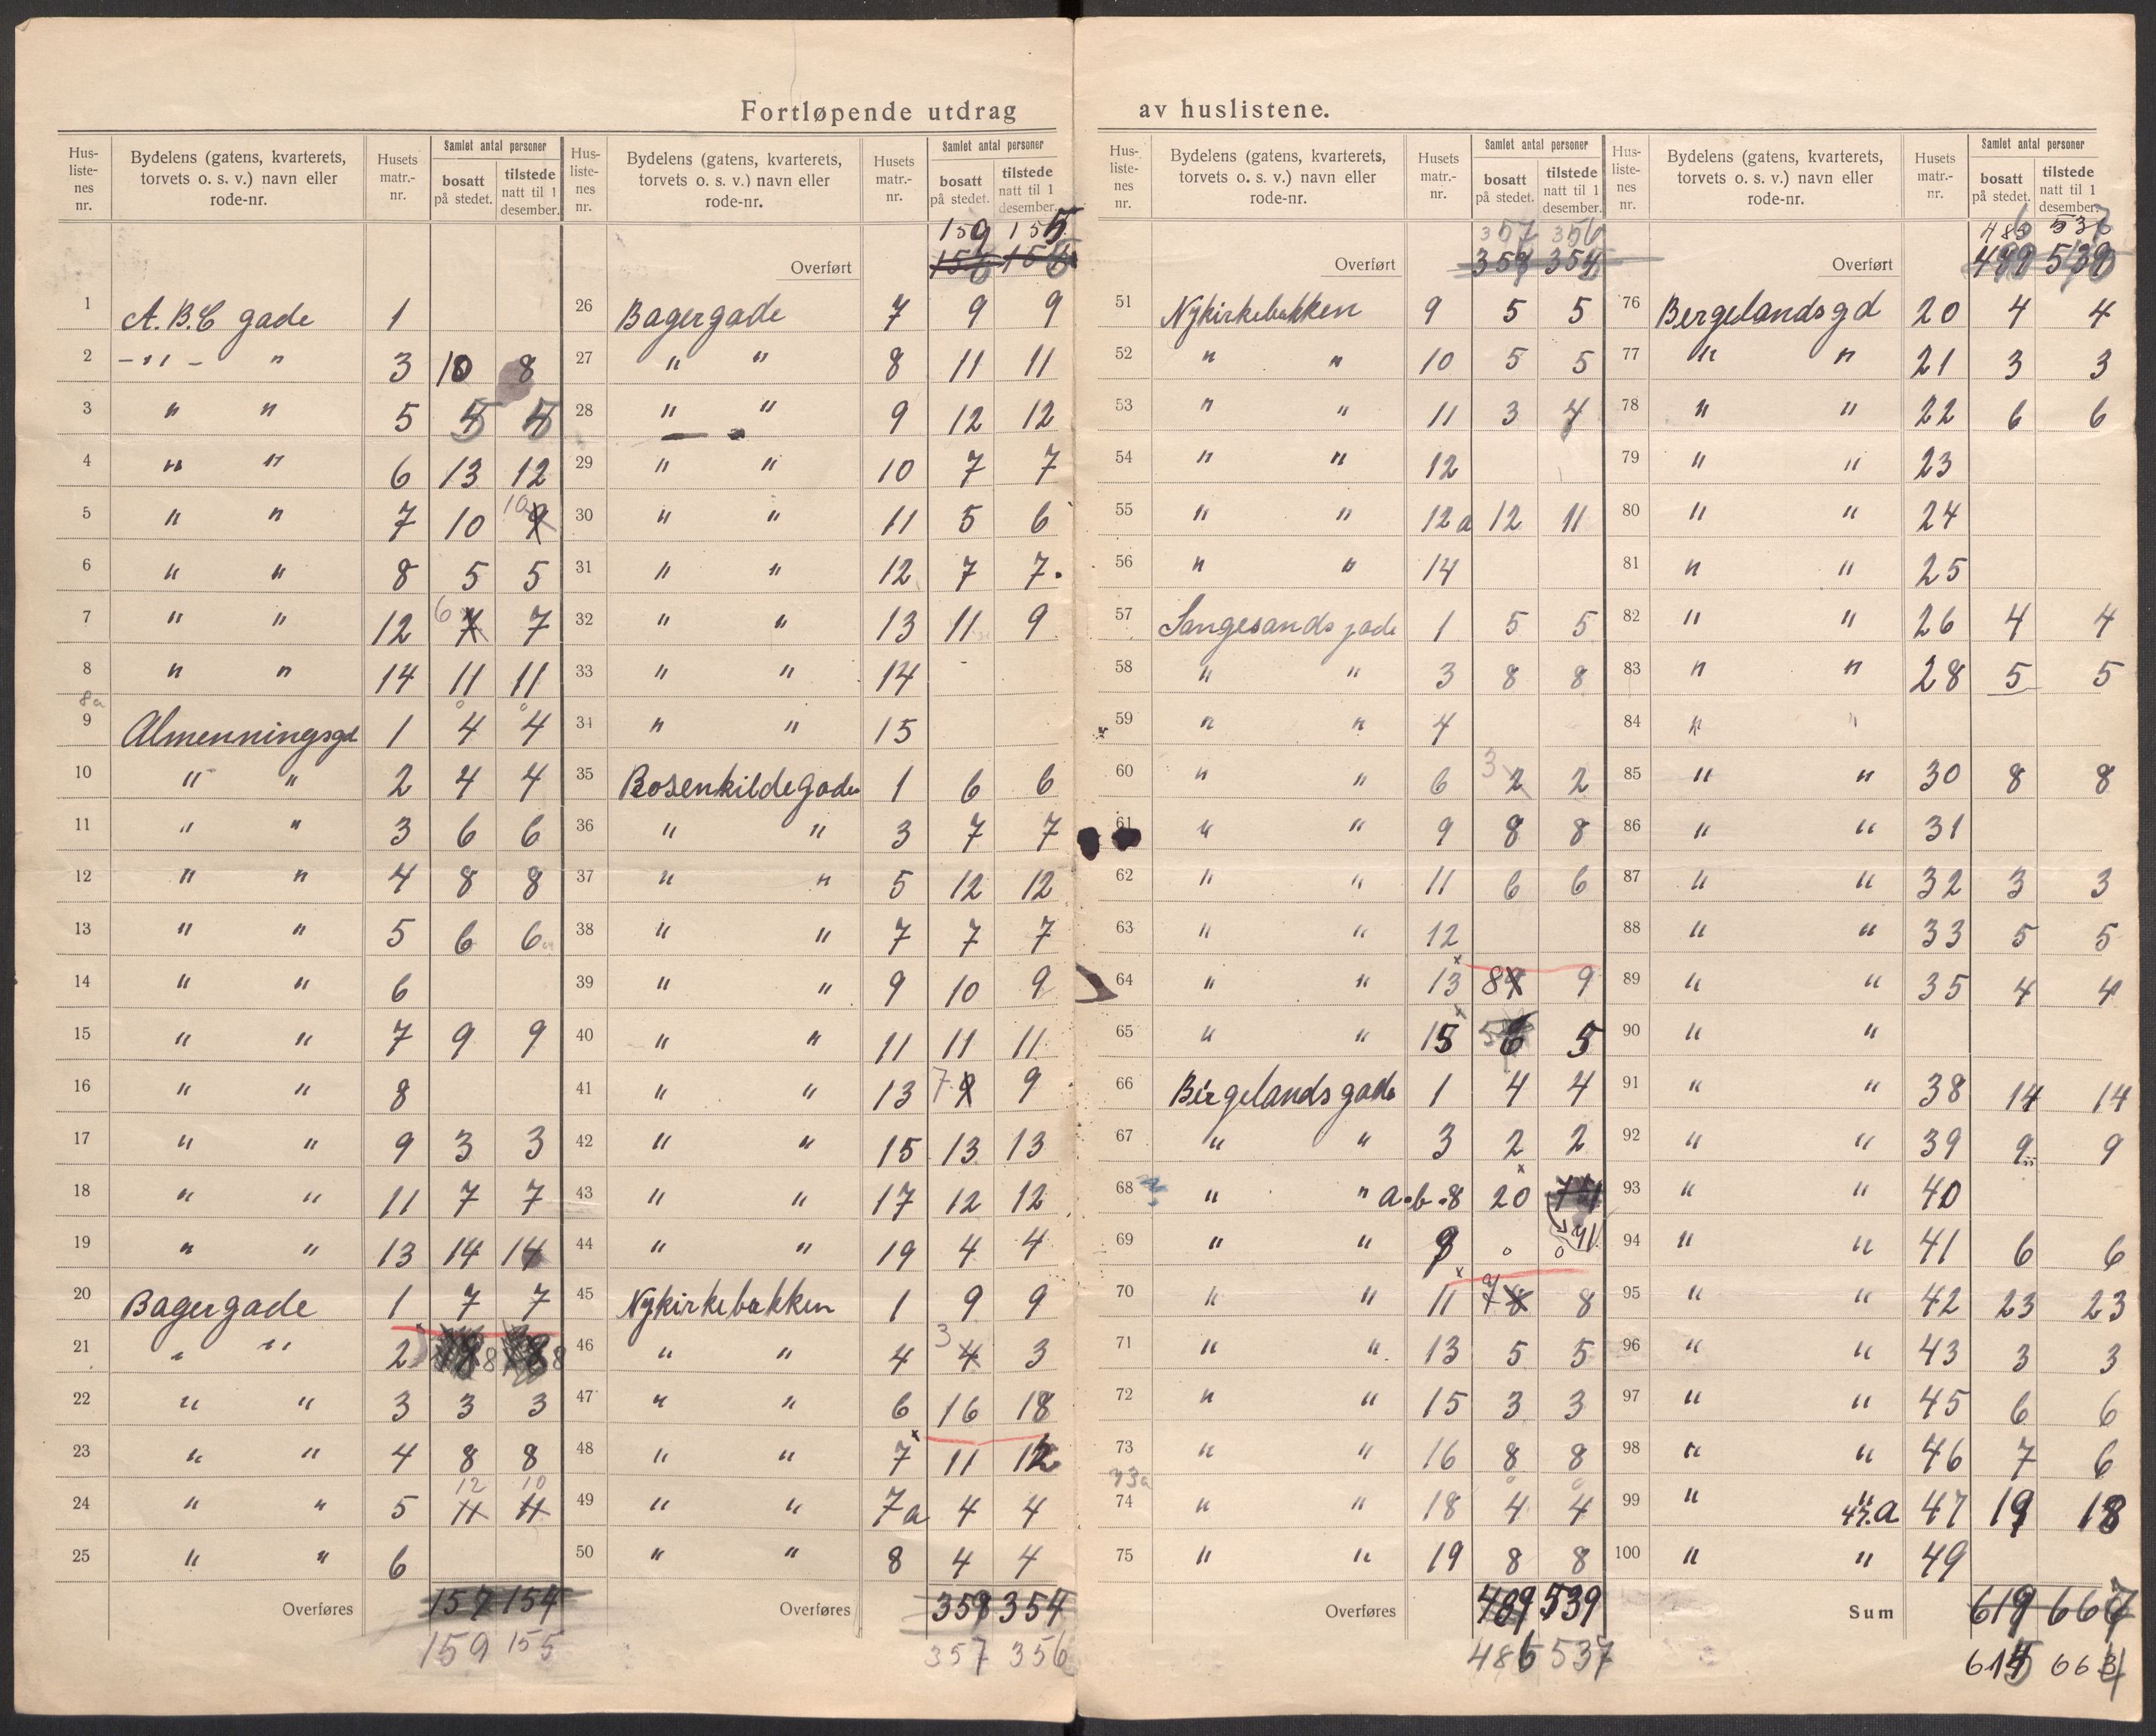 Fortløpende utdrag av huslistene.
Hus-listenes nr. | Bydelens (gatens, kvarterets, torvets o. s. v.) navn eller rode-nr. | Husets matr.-nr. | Samlet antal personer bosatt på stedet. | tilstede natt til 1 desember.
1 A.B.C gade 1
2 -"- " 3 10 8
3 " " 5 5 5
4 " " 6 13 12
5 " " 7 10 10 9
6 " " 8 5 5
7 " " 12 6 7 7
8 " " 14 11 11
8a 0 0
9 Almenningsgd 1 4 4
10 " " 2 4 4
11 " " 3 6 6
12 " " 4 8 8
13 " " 5 6 6
14 " " 6
15 " " 7 9 9
16 " " 8
17 " " 9 3 3
18 " " 11 7 7
19 " " 13 14 14
20 Bagergade 1 7 7
21 " " 2 8 8
22 " " 3 3 3
23 " " 4 8 8
24 " " 5 12 11 10 11
25 " " 6
Overføres 157 154
159 155
Hus-listenes nr. | Bydelens (gatens, kvarterets, torvets o. s. v.) navn eller rode-nr. | Husets matr.-nr. | Samlet antal personer bosatt på stedet. | tilstede natt til 1 desember.
159 155
Overført
26 Bagergade 7 9 9
27 " " 8 11 11
28 " " 9 12 12
29 " " 10 7 7
30 " " 11 5 6
31 " " 12 7 7
32 " " 13 11 9
33 " " 14 -
34 " " 15
35 Rosenkildegade 1 6 6
36 " " 3 7 7
37 " " 5 12 12
38 " " 7 7 7
39 " " 9 10 9
40 " " 11 11 11
41 " " 13 7 9 9
42 " " 15 13 13
43 " " 17 12 12
44 " " 19 4 4
45 Nykirkebakken 1 9 9
46 " " 4 3 4 3
47 " " 6 16 18
48 " " 7 11 12
49 " " 7a 4 4
50 " " 8 4 4
Overføres 354
357 356
Hus-listenes nr. | Bydelens (gatens, kvarterets, torvets o. s. v.) navn eller rode-nr. | Husets matr.-nr. | Samlet antal personer bosatt på stedet. | tilstede natt til 1 desember.
357 356
Overført 354
51 Nykirkebakken 9 5 5
52 " " 10 5 5
53 " " 11 3 4
54 " " 12
55 " " 12a 12 11
56 " " 14
57 Langesandsgade 1 5 5
58 " " 3 8 8
59 " " 4
60 " " 6 3 2 2
61 " " 9 8 8
62 " " 11 6 6
63 " " 12
64 " " 13 8 9 9
65 " " 15 5 6 5
66 Bergelandsgade 1 4 4
67 " " 3 2 2
68 " " a.b.8 20 91
69 " " 9 0 0
70 " " 11 8 8
71 " " 13 5 5
72 " " 15 3 3
73 " " 16 8 8
73a 0 0
74 " " 18 4 4
75 " " 19 8 8
Overføres 489 539
486 537
Hus-listenes nr. | Bydelens (gatens, kvarterets, torvets o. s. v.) navn eller rode-nr. | Husets matr.-nr. | Samlet antal personer bosatt på stedet. | tilstede natt til 1 desember.
486 537
Overført
76 Bergelandsgd 20 4 4
77 " " 21 3 3
78 " " 22 6 6
79 " " 23
80 " " 24
81 " " 25
82 " " 26 4 4
83 " " 28 5 5
84 " "
85 " " 30 8 8
86 " " 31
87 " " 32 3 3
88 " " 33 5 5
89 " " 35 4 4
90 " "
91 " " 38 14 14
92 " " 39 9 9
93 " " 40
94 " " 41 6 6
95 " " 42 23 23
96 " " 43 3 3
97 " " 45 6 6
98 " " 46 7 6
99 " " 47.a 47 19 18
100 " " 49
Sum 619 667
615 664